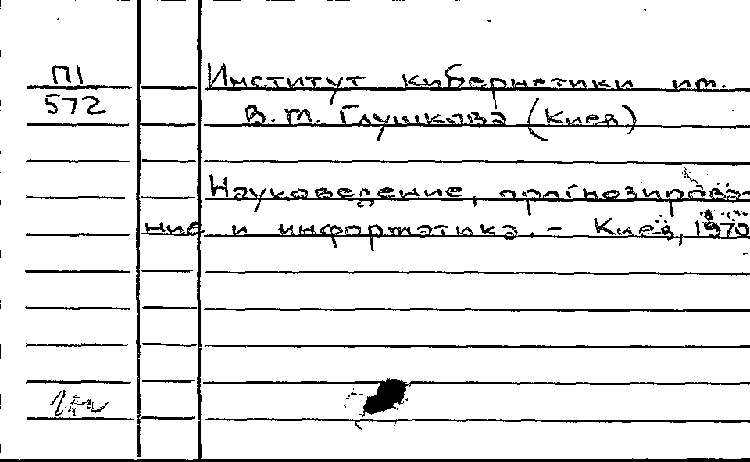 П1
572
Институт кибернетики им.
В.М. Глушкова (Киев)
Науковедение, прогнозирова-
ние и информатика. - Киев, 1970